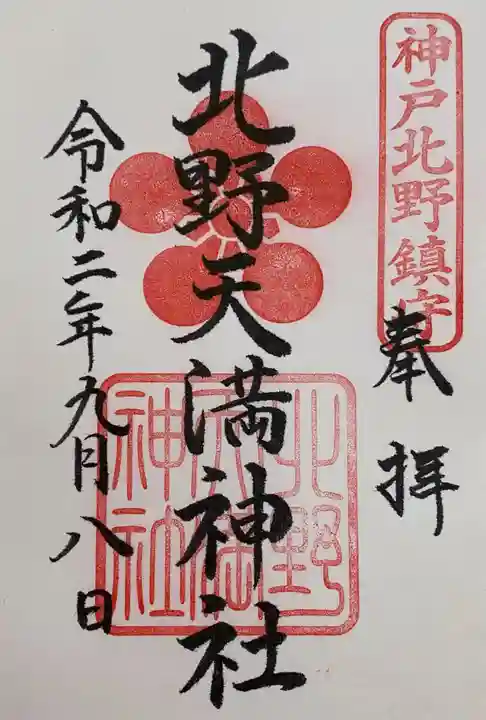 神戸北野鎮守
奉拝
北野天満神社
北野
天満
神社
令和二年九月八日